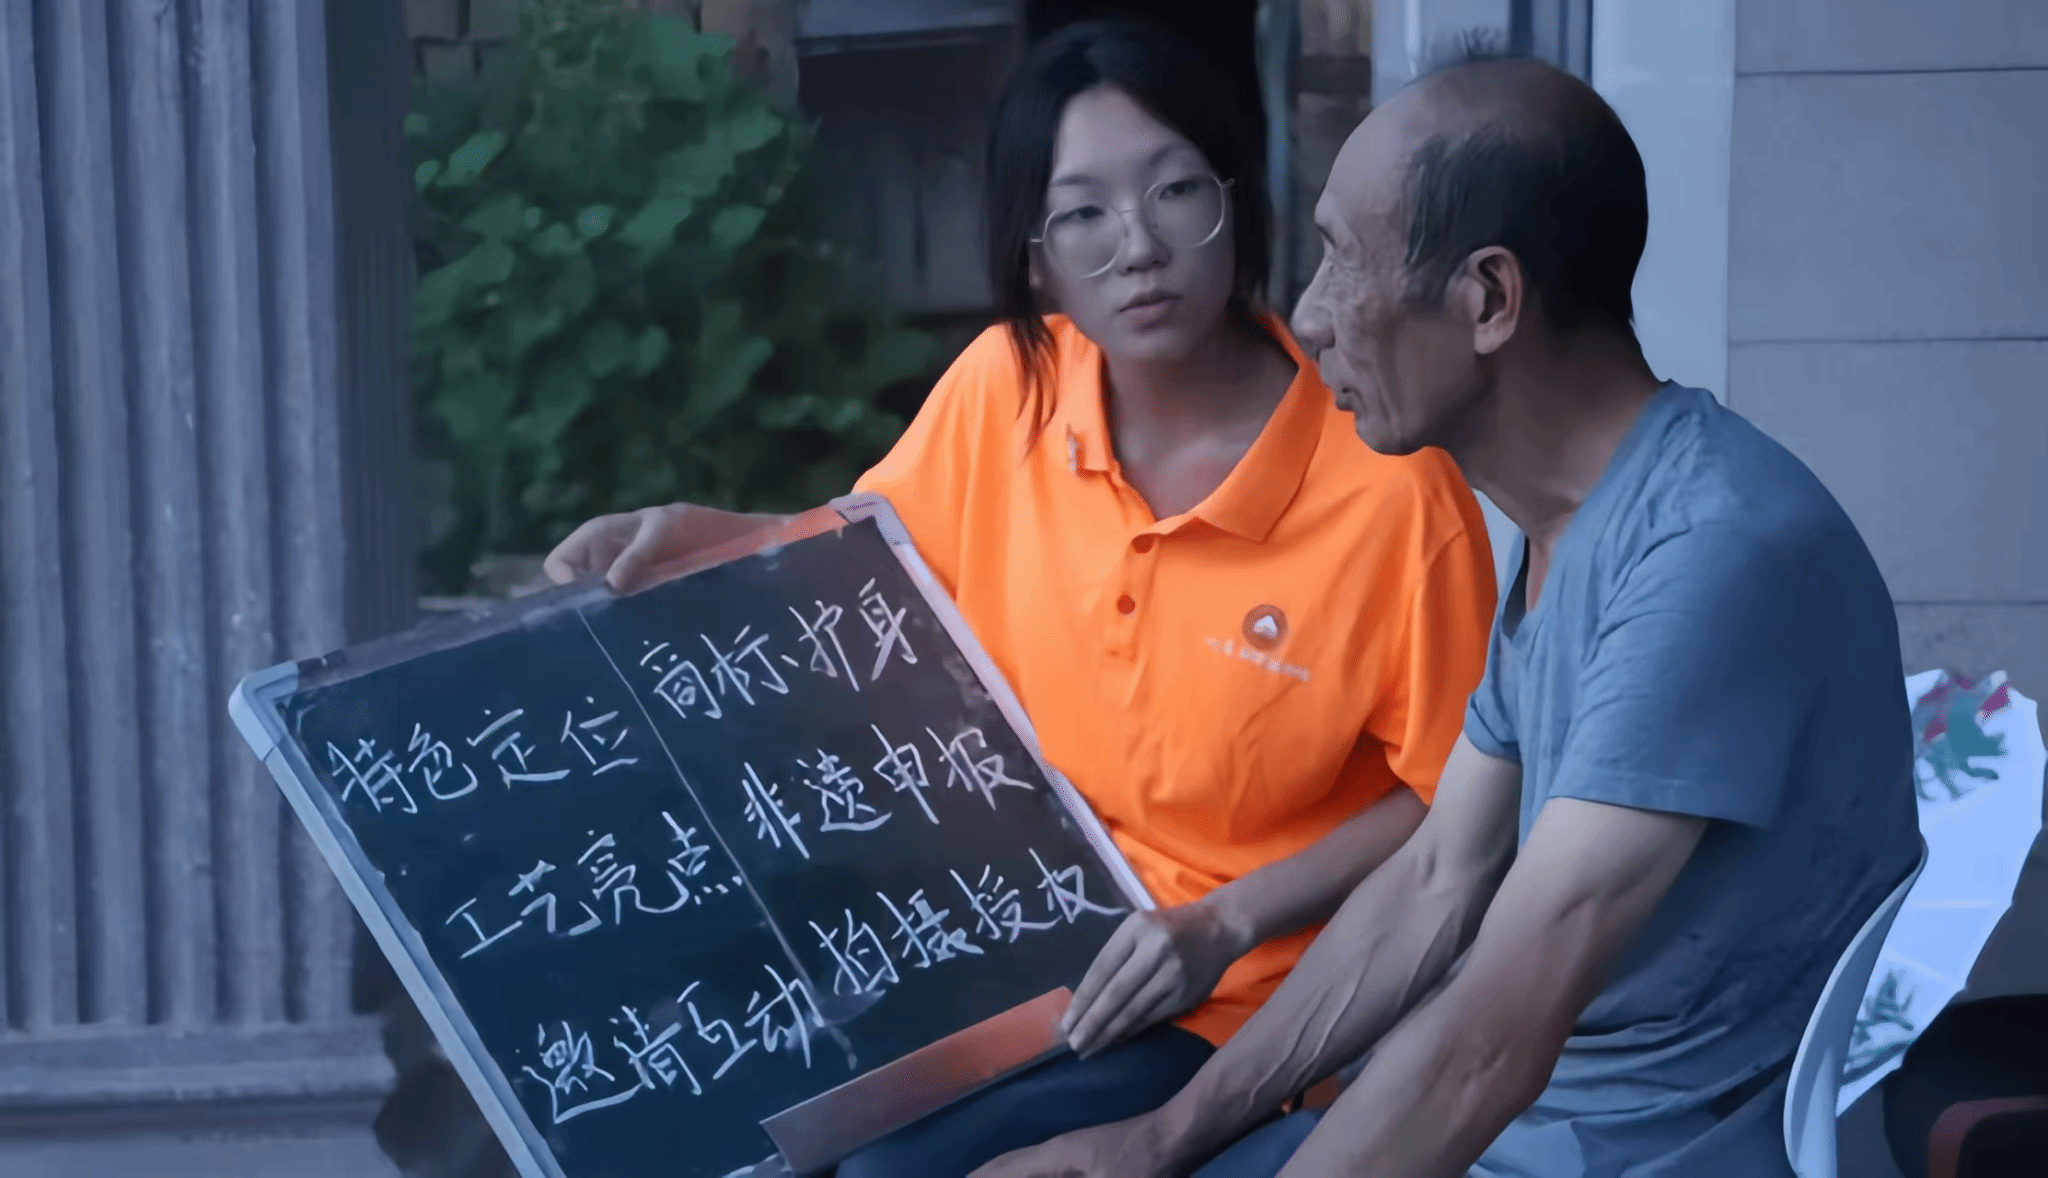 特色定位
工艺亮点
邀请互动
商标护身
非遗申报
拍摄授权